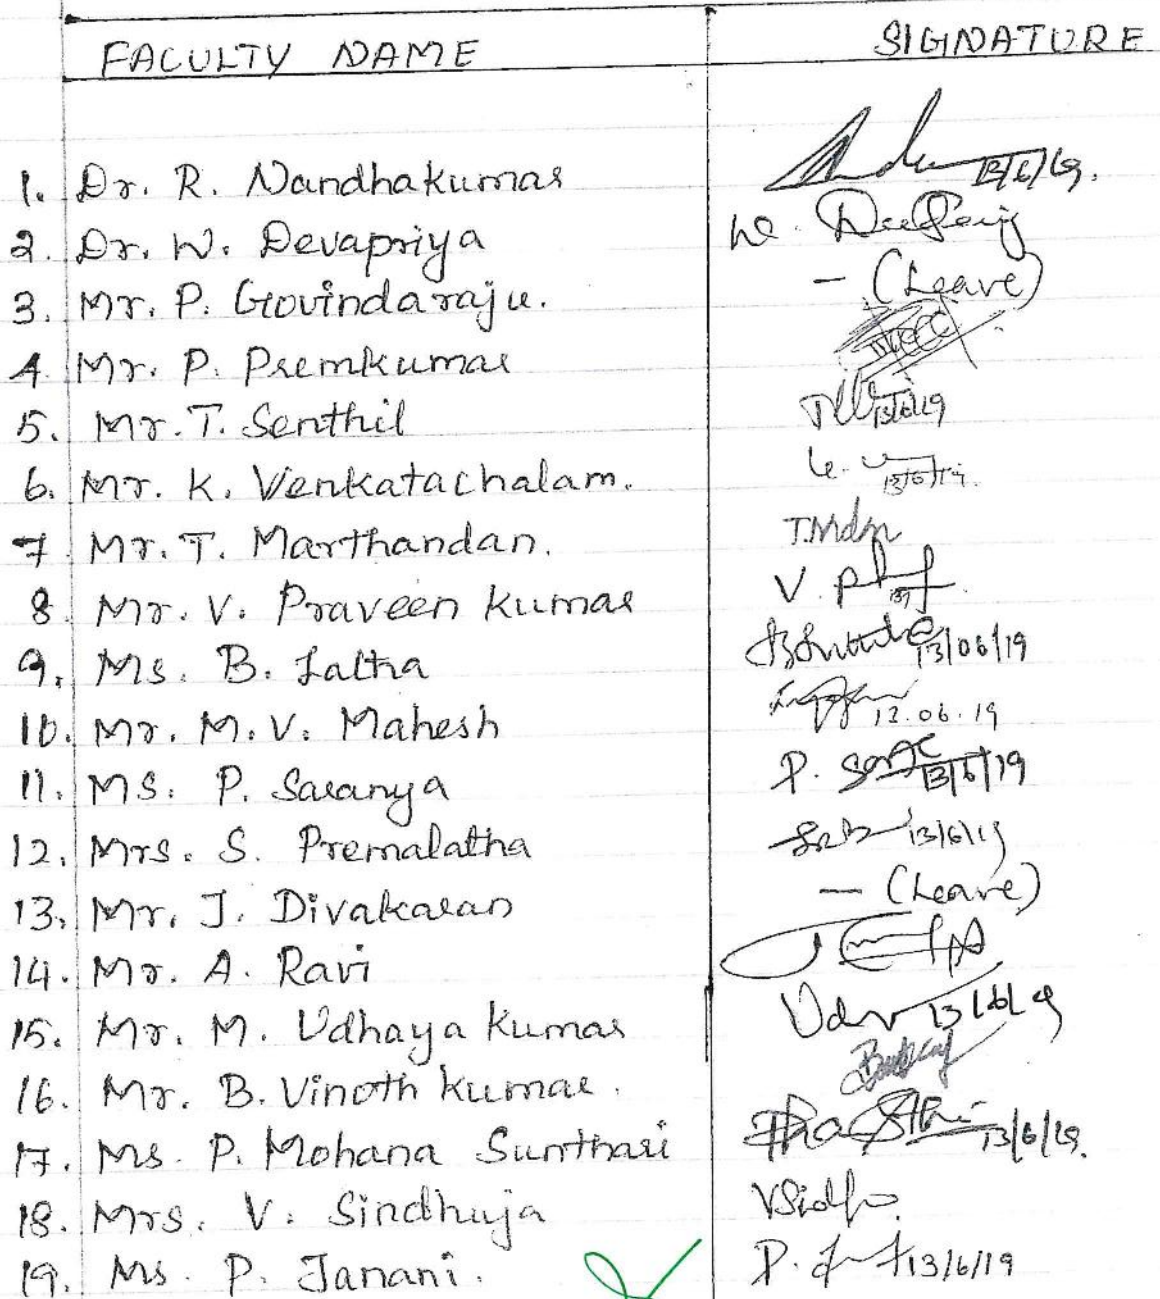 FACULTY NAME SIGNATURE
1. Dr. R. Nandhakumar 13/6/19.
2. Dr. W. Devapriya W.
3. Mr. P. Govindaraju. - (Leave)
4 Mr. P. Premkumar
5. Mr. T. Senthil 13/6/19
6. Mr. K. Venkatachalam. 13/6/19.
7 Mr. T. Marthandan. T.
8. Mr. V. Praveen Kumar V. P
9. Ms. B. Latha 13/06/19
10. Mr. M. V. Mahesh 12.06.19
11. Ms. P. Saranya P. 13/6/19
12. Mrs. S. Premalatha 13/6/19
13. Mr. J. Divakaran - (Leave)
14. Mr. A. Ravi
15. Mr. M. Udhaya Kumar 13/6/19
16. Mr. B. Vinoth Kumar.
17. Ms. P. Mohana Sunthari 13/6/19.
18. Mrs. V. Sindhuja
19. Ms. P. Janani. P. 13/6/19